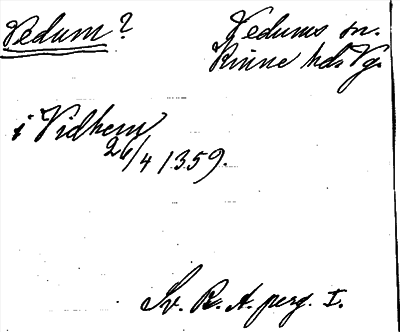 Vedum? Vedums sn.
Kinne hds Vg.
i Vidhem
26/4 1359.
Sv. R. A. perg. I.